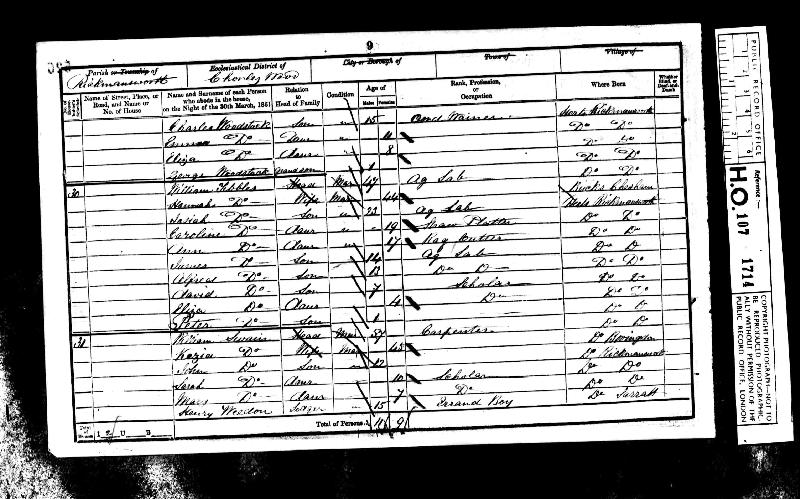 9
Parish or Township of Rickmansworth
Ecclesiastical District of Chorley Wood
City or Borough of
Town of
Village of
Name of Street, Place, or Road, and Name or No. of House
Name and Surname of each Person who abode in the house, on the Night of the 30th March, 1851
Relation to Head of Family
Condition
Age of
Males Females
Rank, Profession, or Occupation
Where Born
Whether Blind, or Deaf-and-Dumb
Charles Woodstock Son 15 Herts Rickmansworth
Do Daur 11 Do Do
Eliza Do Daur 8 Do Do
George Woodstock Grandson 1 Do Do
30 William Head Mar 47 Ag Lab Bucks Chesham
Hannah Do Wife Mar 44 Herts Rickmansworth
Josiah Do Son 23 Ag Lab Do Do
Caroline Do Daur 19 Straw Platter Do Do
Ann Do Daur 17 Rag Cutter Do Do
James Do Son 14 Ag Lab Do Do
Alfred Do Son 13 Do Do Do Do
David Do Son 7 Scholar Do Do
Eliza Do Daur 4 Do Do Do
Peter Do Son 1 Do Do
31 William Swain Head Mar Carpenter Do Bovingdon
Kezia Do Wife Mar 43 Do Rickmansworth
John Do Son 12 Do Do
Sarah Do Daur 10 Scholar Do Do
Mary Do Daur 7 Do Do Do
Henry Weedon Lodger 15 Errand Boy Do Sarratt
Total of Persons 11 9
PUBLIC RECORD OFFICE
Reference:-
H.O. 107 1714
COPYRIGHT PHOTOGRAPH-NOT TO
BE REPRODUCED PHOTOGRAPHIC-
ALLY WITHOUT PERMISSION OF THE
PUBLIC RECORD OFFICE, LONDON